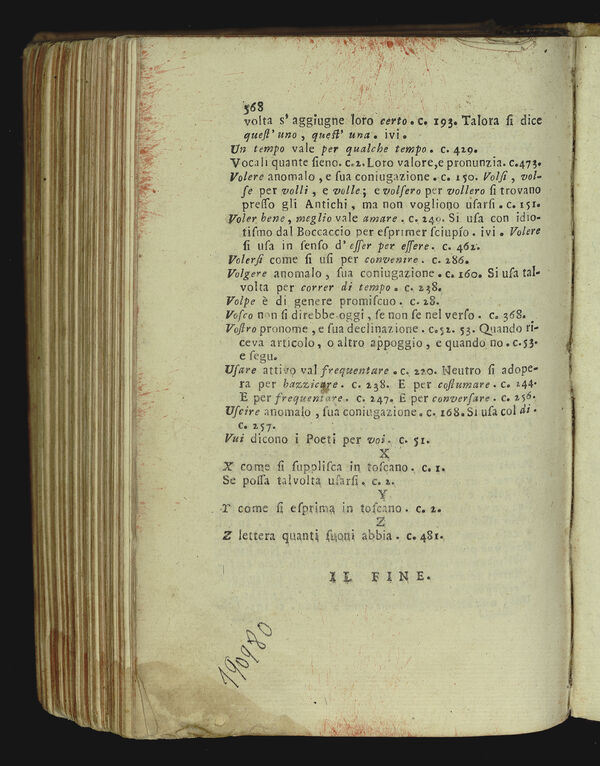 568
volta s'aggiugne loro certo. c. 193. Talora ſi dice
queſt' uno, queſt' una. ivi.
Un tempo vale per qualche tempo. c. 429.
Vocali quante ſieno. c. 2. Loro valore, e pronunzia. c. 473.
Volere anomalo, e ſua coniugazione. c. 150. Volſi, vol-
ſe per volli, e volle; e volſero per vollero ſi trovano
preſſo gli Antichi, ma non vogliono uſarſi. c. 151.
Voler bene, meglio vale amare. c. 240. Si uſa con idio-
tiſmo dal Boccaccio per eſprimer ſciupìo. ivi. Volere
ſi uſa in ſenſo d'eſſer per eſſere. c. 462.
Volerſi come ſi uſi per convenire. c. 286.
Volgere anomalo, ſua coniugazione. c. 160. Si uſa tal-
volta per correr di tempo. c. 238.
Volpe è di genere promiſcuo. c. 28.
Voſco non ſi direbbe oggi, ſe non ſe nel verſo. c. 368.
Voſtro pronome, e ſua declinazione. c. 52. 53. Quando ri-
ceva articolo, o altro appoggio, e quando no. c. 53.
e ſegu.
Uſare attivo val frequentare. c. 220. Neutro ſi adope-
ra per bazzicare. c. 238. E per coſtumare. c. 244.
E per frequentare. c. 247. E per converſare. c. 256.
Uſcire anomalo, ſua coniugazione. c. 168. Si uſa col di.
c. 257.
Vui dicono i Poeti per voi. c. 51.
X
X come ſi ſupliſca in toſcano. c. 1.
Se poſſa talvolta uſarſi. c. 2.
Y
Y come ſi eſprima in toſcano. c. 2.
Z
Z lettera quanti ſuoni abbia. c. 481.
IL FINE.
190980